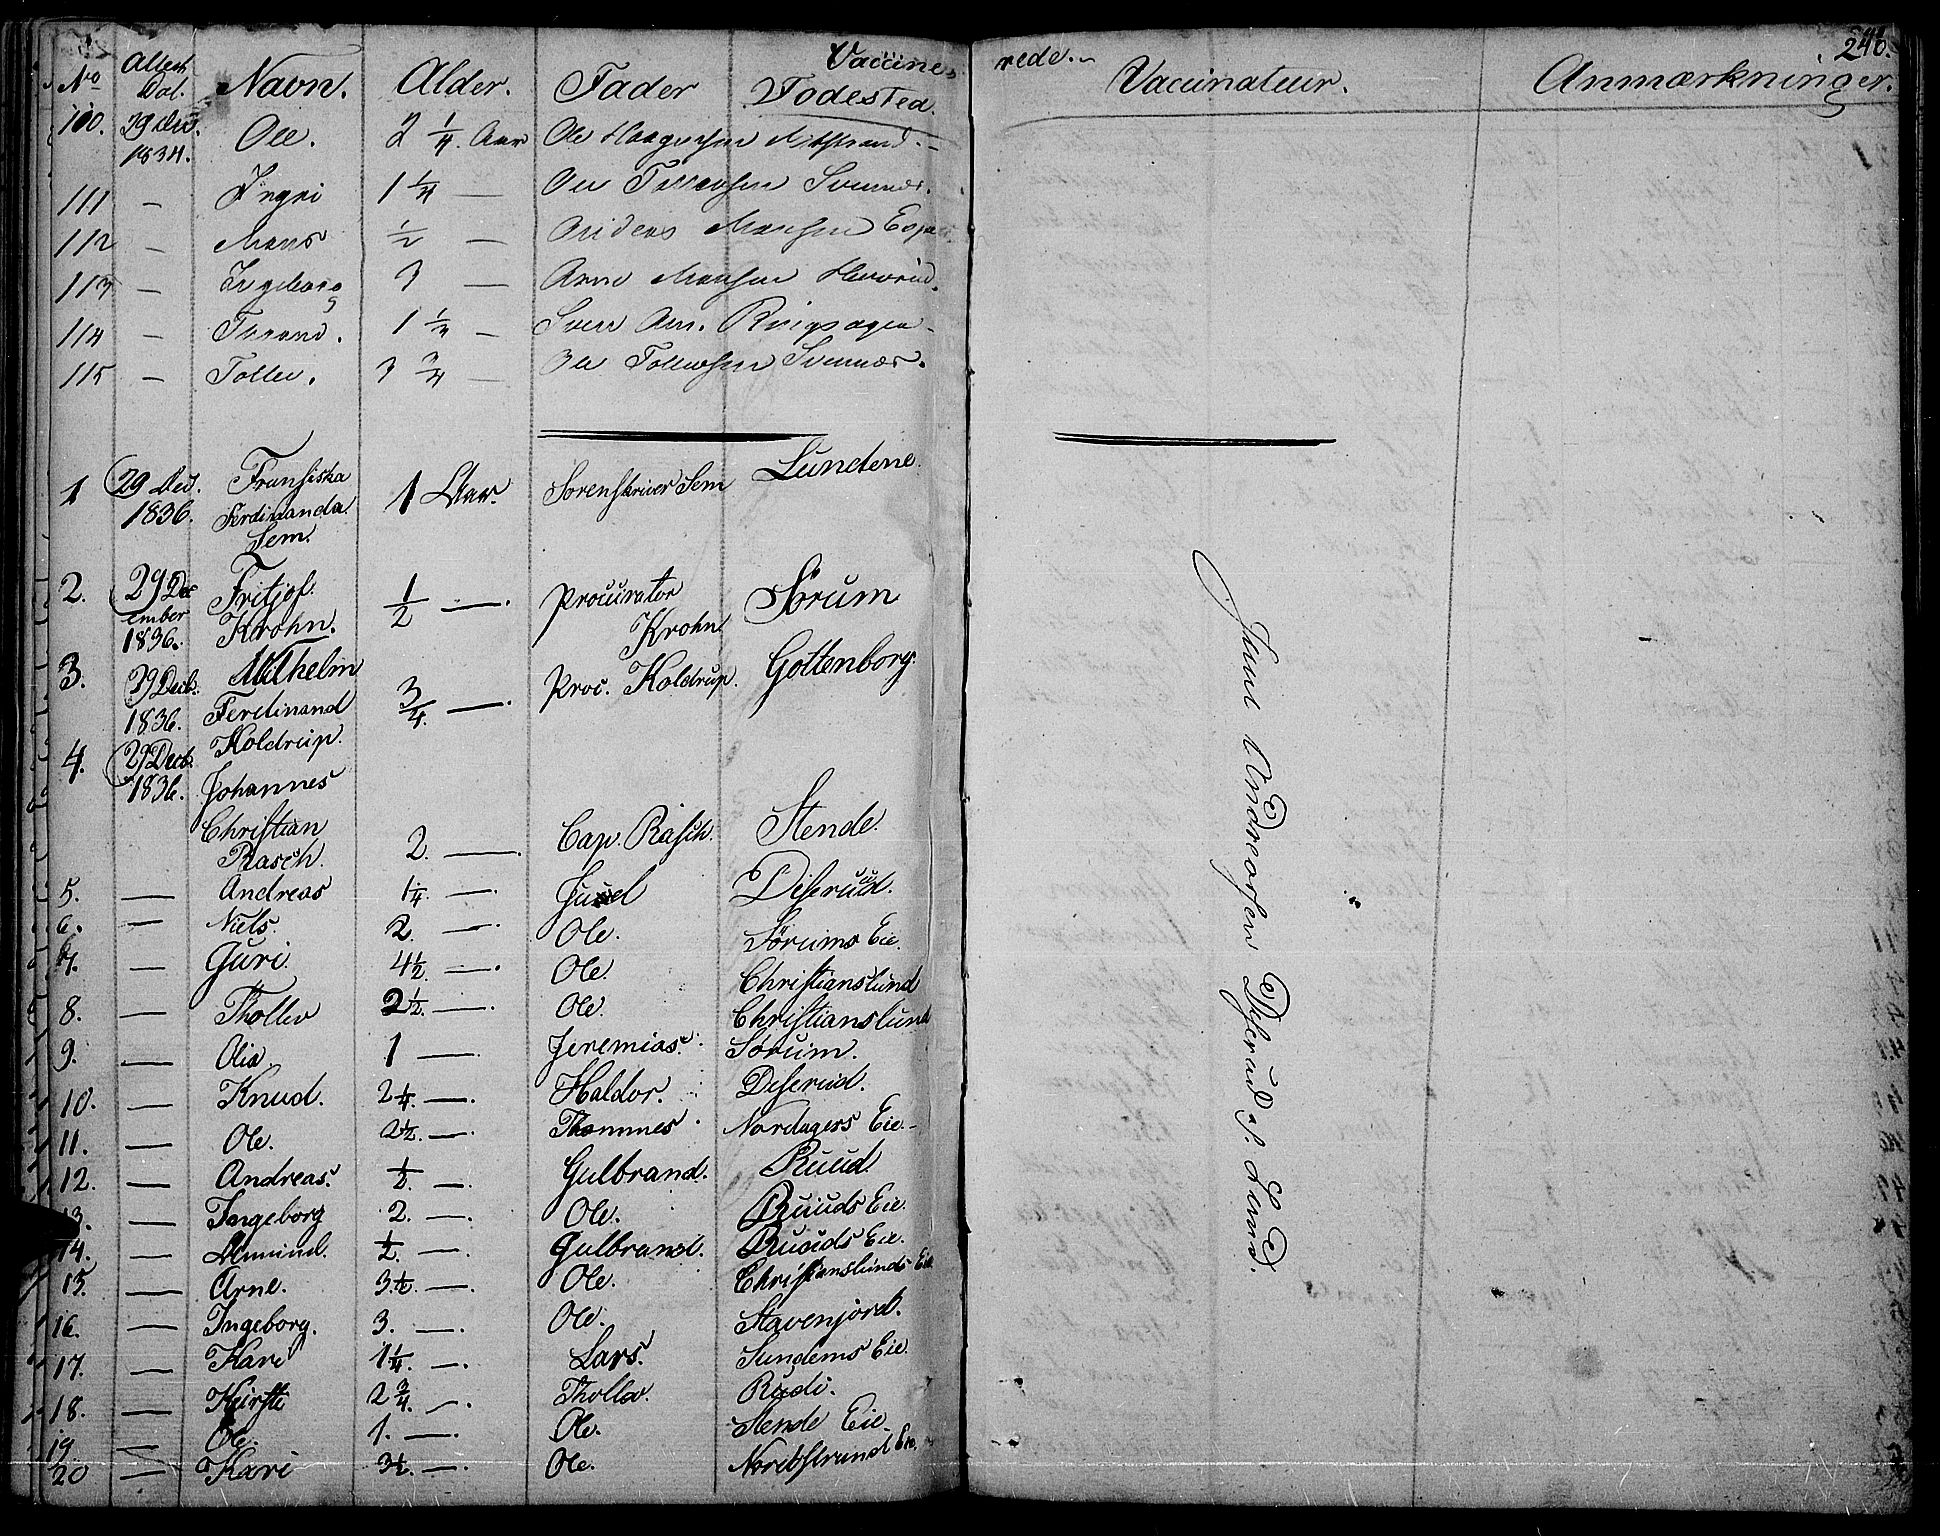 Vaccine- rede.
240.
No Attest Dat. Navn. Alder. Fader Fødested. Vaccinateur. Anmærkninger.
110. 29 Dec. 1834. Ole. 2 1/4. Aar Ole
111 — Ingri 1 1/4 — Ole Tollevsen
112 — Mons 1/2 — Anders Monsen
113 — Ingeborg 3 — Arne Monsen
114 — 1 1/3 — Ringsagen
115 — Tollev. 3 3/4 — Ole Tollevsen
1 29 Dec. 1836. Fransiska Ferdinanda Sem. 1 Aar. Sorenskriver Sem Lundene.
2. 29 December 1836. Fritjof Krohn. 1/2 —. Procurator Krohn. Sørum
3. 29 Decb. 1836. Wilhelm Ferdinand Koldrup. 3/4. —. Proc. Koldrup. Gottenborg.
4. 29 Decb. 1836. Johannes Christian Rasch. 2. —. Cap. Rasch. Stende.
5. — Andreas 1 1/4. —. Juul Diserud.
6. — Niels. 2. —. Ole. Sørums Eie.
7. — Guri. 4 1/2. —. Ole. Christianslund
8. — Thollev 2 1/2. —. Ole. Christianslund
9. — Olia. 1 —. Jeremias. Sørum.
10. — Knud. 2 1/4. —. Haldor. Diserud.
11. — Ole. 2 1/2. —. Thommes. Nordagers Eie.
12. — Andreas. 1/2. —. Gulbrand. Ruud.
13. — Ingeborg 2. —. Ole. Ruuds Eie.
14. — Amund. 1/2. —. Gulbrand. Ruuds Eie.
15. — Arne. 3 1/2. —. Ole. Christianslunds Eie
16. — Ingeborg. 3. —. Ole. Stavenjord.
17. — Kari 1 1/4. —. Lars. Sundems Eie.
18. — Kirsti 2 3/4. —. Thollev. Rudi.
19. — Ole. 1. —. Ole. Stende Eie.
20 — Kari 3 1/2. —. Ole. Eie.
Juul Andreasen Diserud s. Lund.